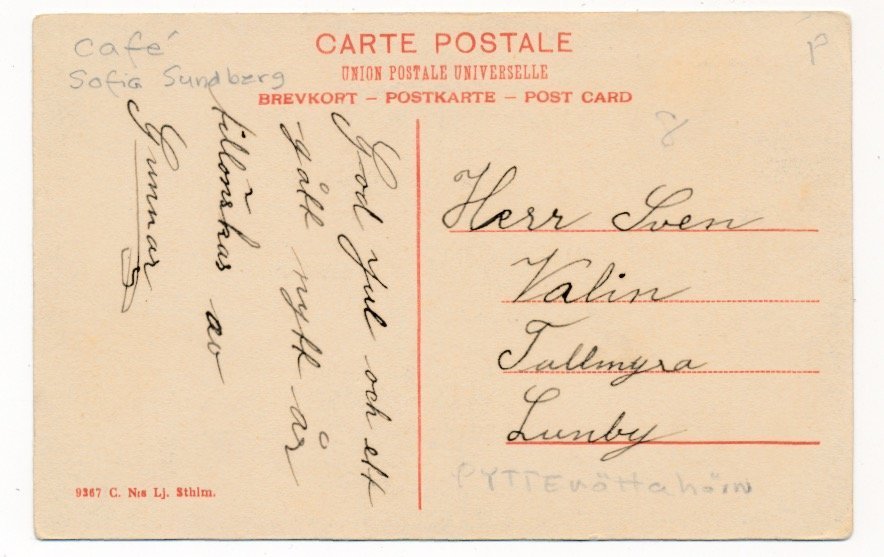 Café
Sofia Sundberg
CARTE POSTALE
UNION POSTALE UNIVERSELLE
BREVKORT – POSTKARTE – POST CARD
P
God Jul och ett
gått nytt år
tillönskas av
Gunnar
Herr Sven
Valin
Tallmyra
Lunby
9367 C. N:s Lj. Sthlm.